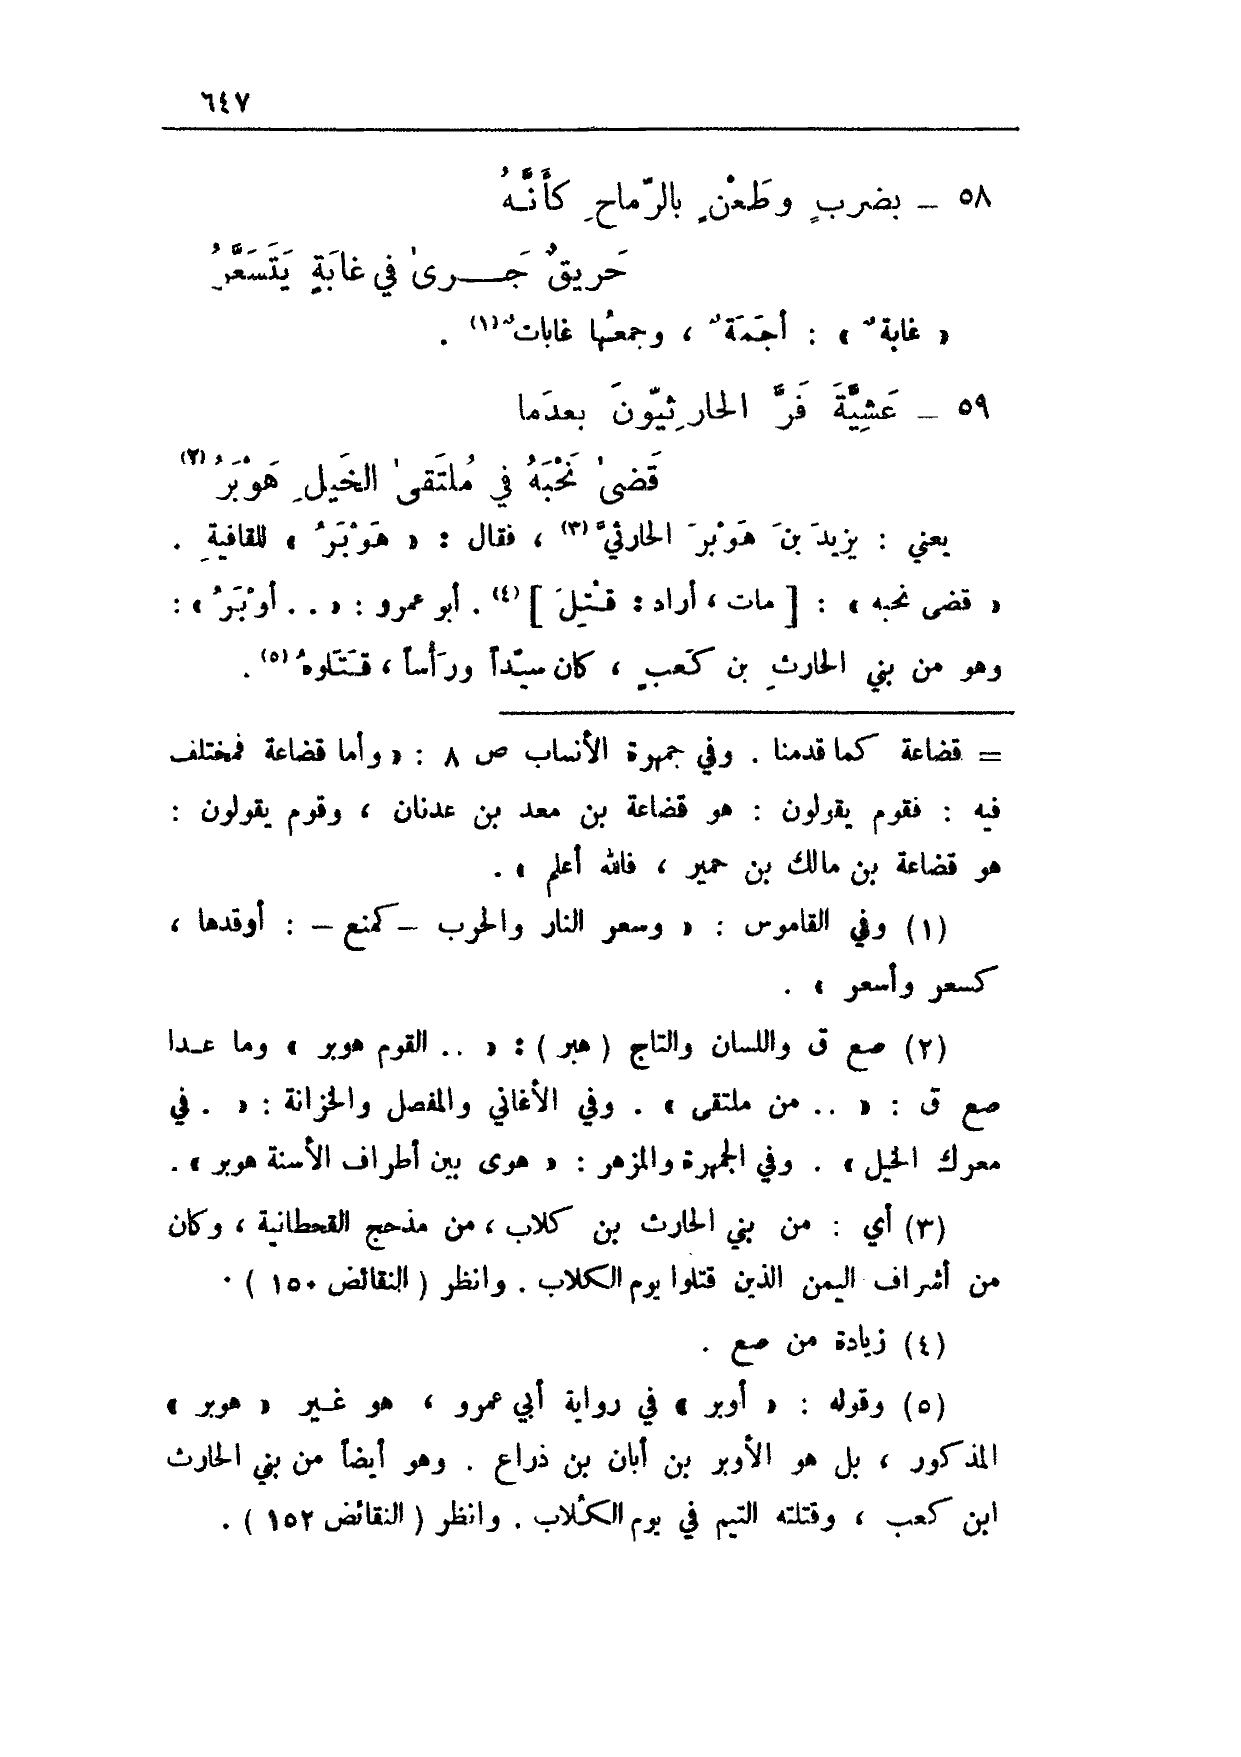 ٦٤٧
٥٨ ـ بضربٍ وطَعْنٍ بالرّماحِ كأَنَّهُ
حَريقٌ جَــرىٰ في غابَةٍ يَتَسَعَّرُ
« غابةٌ » : أجَمَةٌ ، وجمعُها غاباتٌ(١) .
٥٩ ـ عَشِيَّةَ فَرَّ الحارِثيّونَ بعدَما
قَضىٰ نَحْبَهُ في مُلتَقىٰ الخَيلِ هَوْبَرُ(٢)
يعني : يزيدَ بنَ هَوْبرَ الحارثيَّ(٣) ، فقال : « هَوْبَرُ » للقافيةِ .
« قضى نحبه » : [ مات ، أراد : قُتِلَ ](٤) . أبو عمرو : « . . أوْبَرُ » :
وهو من بني الحارثِ بن كَعبٍ ، كان سيّداً ورَأْساً ، قَتَلوهُ(٥) .
= قضاعة كما قدمنا . وفي جمهرة الأنساب ص ٨ : « وأما قضاعة فمختلف
فيه : فقوم يقولون : هو قضاعة بن معد بن عدنان ، وقوم يقولون :
هو قضاعة بن مالك بن حمير ، فالله أعلم » .
(١) وفي القاموس : « وسعر النار والحرب – كمنع – : أوقدها ،
كسعر وأسعر » .
(٢) صع ق واللسان والتاج ( هبر ) : « .. القوم هوبر » وما عـدا
صع ق : « .. من ملتقى » . وفي الأغاني والمفصل والخزانة : « . في
معرك الخيل » . وفي الجمهرة والمزهر : « هوى بين أطراف الأسنة هوبر » .
(٣) أي : من بني الحارث بن كلاب ، من مذحج القحطانية ، وكان
من أشراف اليمن الذين قتلوا يوم الكلاب . وانظر ( النقائض ١٥٠ ) .
(٤) زيادة من صع .
(٥) وقوله : « أوبر » في رواية أبي عمرو ، هو غـير « هوبر »
المذكور ، بل هو الأوبر بن أبان بن ذراع . وهو أيضاً من بني الحارث
ابن كعب ، وقتلته التيم في يوم الكُلاب . وانظر ( النقائض ١٥٢ ) .